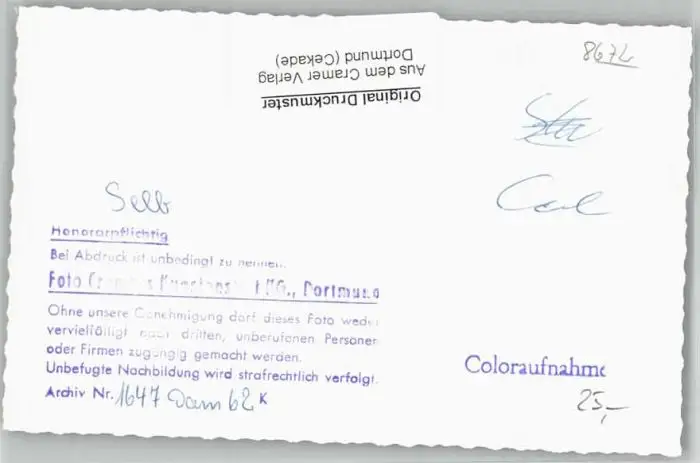 8672
Original Druckmuster
Aus dem Cramer Verlag
Dortmund (Cekade)
Selb
Honorarpflichtig
Bei Abdruck ist unbedingt zu nennen:
Foto Cramers Kunstanstalt KG., Dortmund
Ohne unsere Genehmigung darf dieses Foto weder
vervielfältigt noch dritten, unberufenen Personen
oder Firmen zugängig gemacht werden.
Unbefugte Nachbildung wird strafrechtlich verfolgt.
Archiv Nr. 1647 62 K
Coloraufnahme
25,-